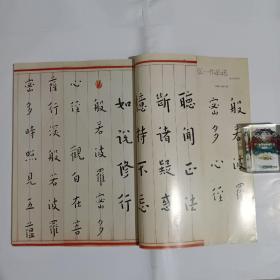 般若波羅
密多心經
聽聞正法
斷諸疑惑
憶持不忘
如說修行
般若波羅密多
心經觀自在菩
薩行深般若波羅
密多時照見五蘊